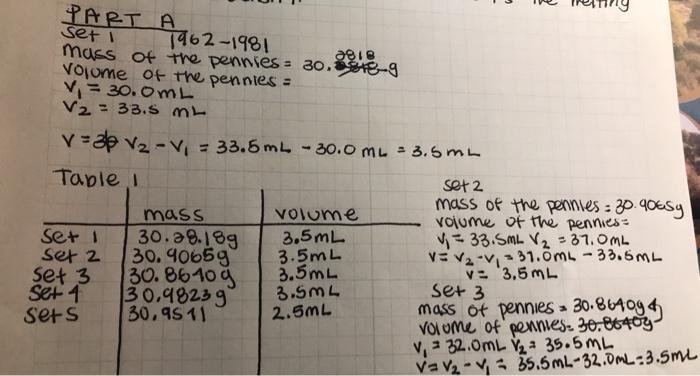 melting
PART A
Set 1 1962-1981
mass of the pennies = 30.2818 g
volume of the pennies =
V₁ = 30.0mL
V₂ = 33.5 mL
V = V₂ - V₁ = 33.5mL - 30.0 mL = 3.5mL
Table 1
mass volume
Set 1 30.28.18g 3.5mL
Set 2 30.9065g 3.5mL
Set 3 30.8640g 3.5mL
Set 4 30.9823g 3.5mL
Set 5 30.9511 2.5mL
set 2
mass of the pennies = 30.9065g
volume of the pennies =
V₁ = 33.5mL V₂ = 37.0mL
V = V₂ - V₁ = 37.0mL - 33.5mL
V = 3.5mL
Set 3
mass of pennies = 30.8640g
volume of pennies = 30.8640g
V₁ = 32.0mL V₂ = 35.5mL
V = V₂ - V₁ = 35.5mL - 32.0mL = 3.5mL